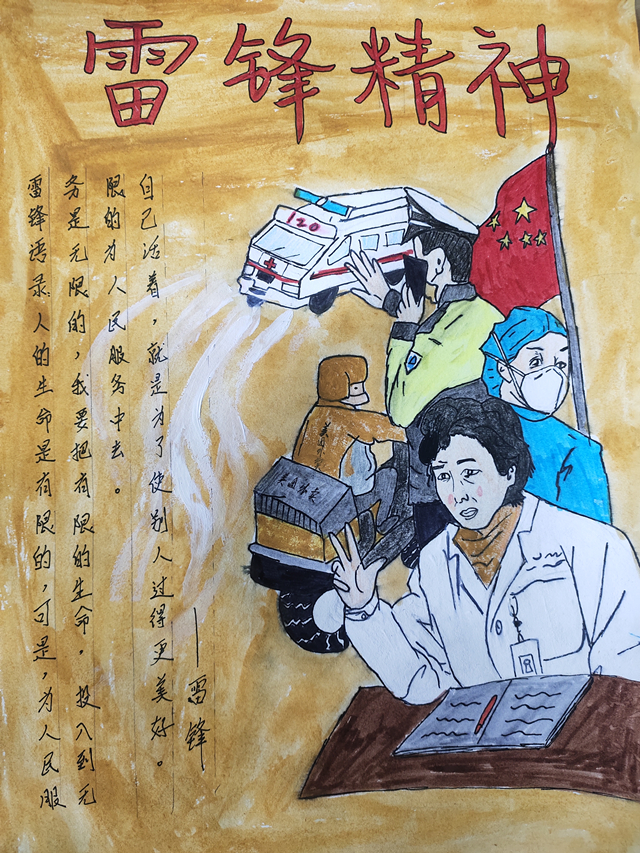 雷锋精神
雷锋语录人的生命是有限的,可是,为人民服
务是无限的,我要把有限的生命,投入到无
限的为人民服务中去。
自己活着,就是为了使别人过得更美好。
——雷锋
120